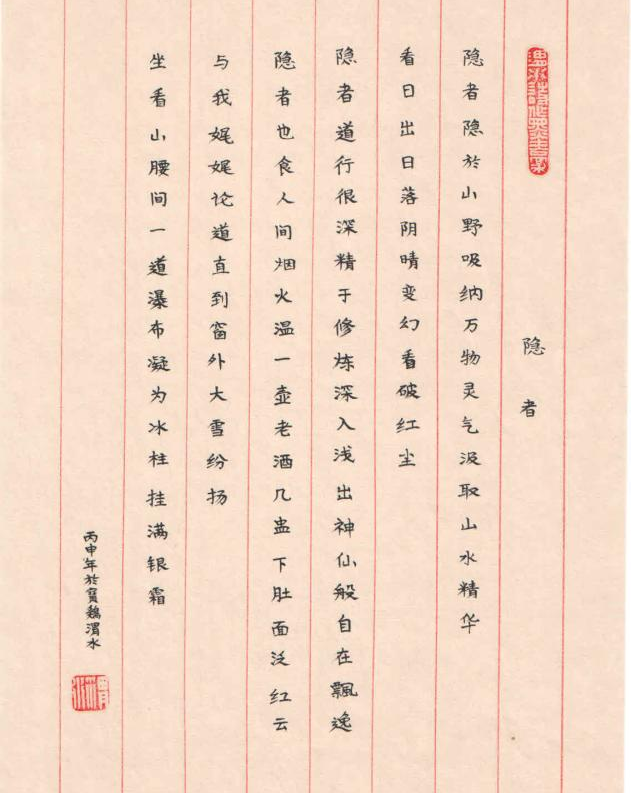 隐者
隐者隐於山野吸纳万物灵气汲取山水精华
看日出日落阴晴变幻看破红尘
隐者道行很深精于修炼深入浅出神仙般自在飘逸
隐者也食人间烟火温一壶老酒几盅下肚面泛红云
与我娓娓论道直到窗外大雪纷扬
坐看山腰间一道瀑布凝为冰柱挂满银霜
丙申年於寳鷄渭水